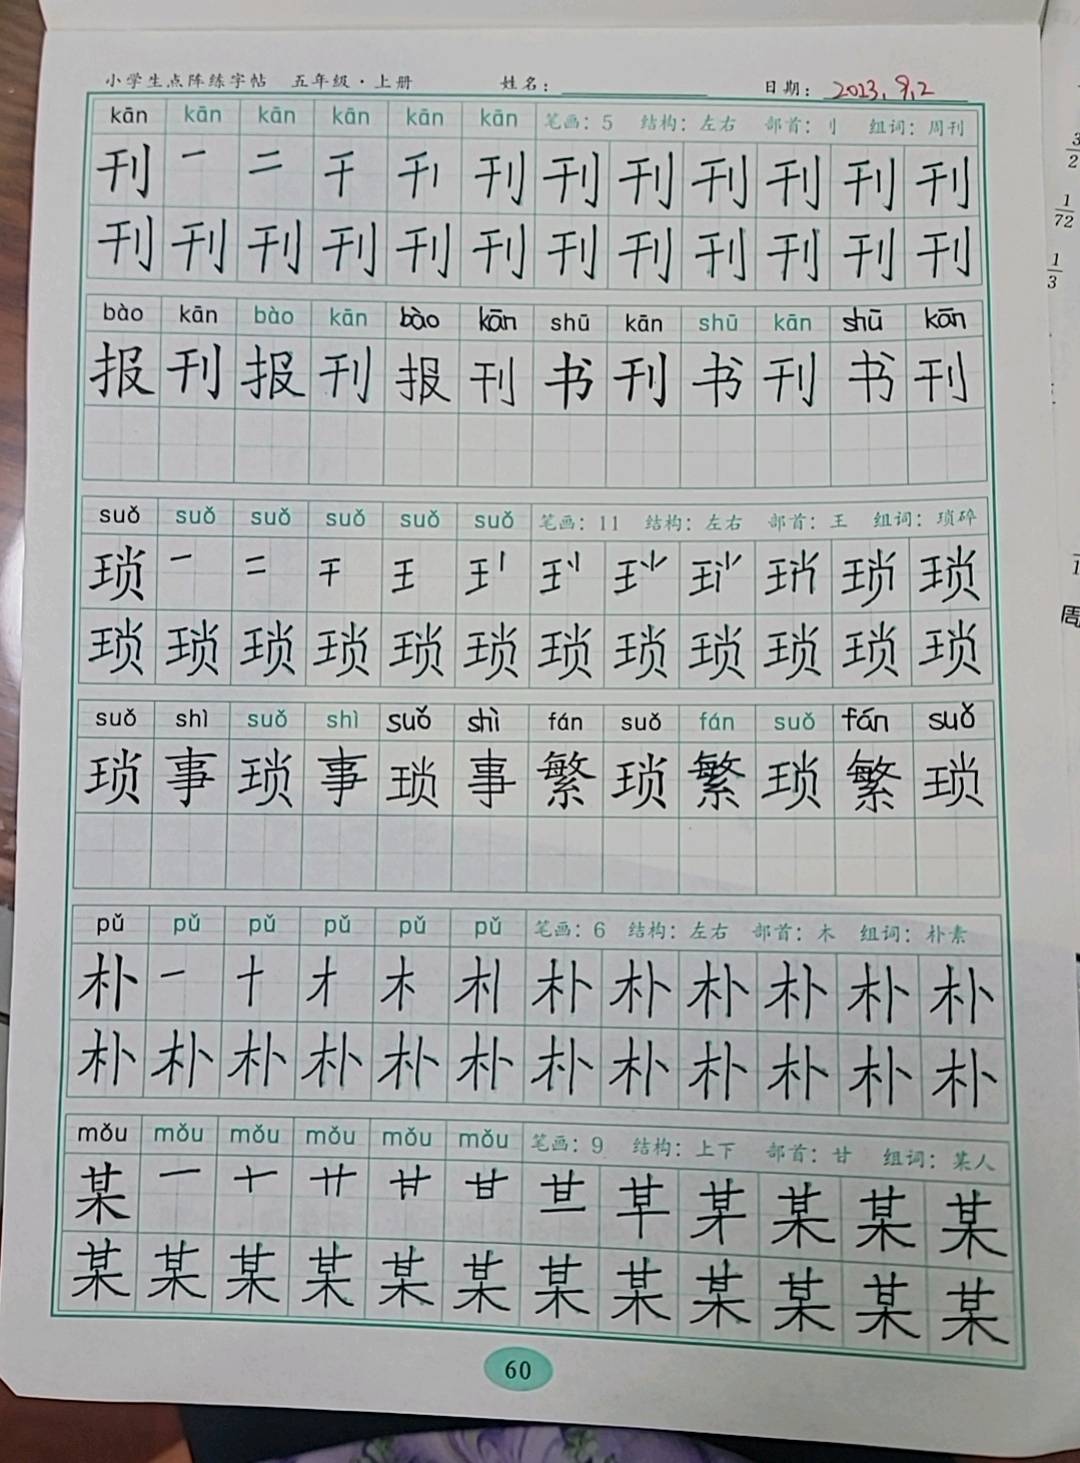 小学生点阵练字帖 五年级·上册 姓名: 日期: 2023.9.2
kān kān kān kān kān kān 笔画: 5 结构: 左右 部首: 刂 组词: 周刊
刊 一 二 干 刊 刊 刊 刊 刊 刊 刊
刊 刊 刊 刊 刊 刊 刊 刊 刊 刊 刊 刊
bào kān bào kān bào kān shū kān shū kān shū kān
报 刊 报 刊 报 刊 书 刊 书 刊 书 刊
suǒ suǒ suǒ suǒ suǒ suǒ 笔画: 11 结构: 左右 部首: 王 组词: 琐碎
琐 一 二 干 王 琐 琐
琐 琐 琐 琐 琐 琐 琐 琐 琐 琐 琐 琐
suǒ shì suǒ shì suǒ shì fán suǒ fán suǒ fán suǒ
琐 事 琐 事 琐 事 繁 琐 繁 琐 繁 琐
pǔ pǔ pǔ pǔ pǔ pǔ 笔画: 6 结构: 左右 部首: 木 组词: 朴素
朴 一 十 才 木 朴 朴 朴 朴 朴 朴
朴 朴 朴 朴 朴 朴 朴 朴 朴 朴 朴 朴
mǒu mǒu mǒu mǒu mǒu mǒu 笔画: 9 结构: 上下 部首: 甘 组词: 某人
某 一 十 廿 甘 某 某 某
某 某 某 某 某 某 某 某 某 某 某 某
60
1
72
1
3
周